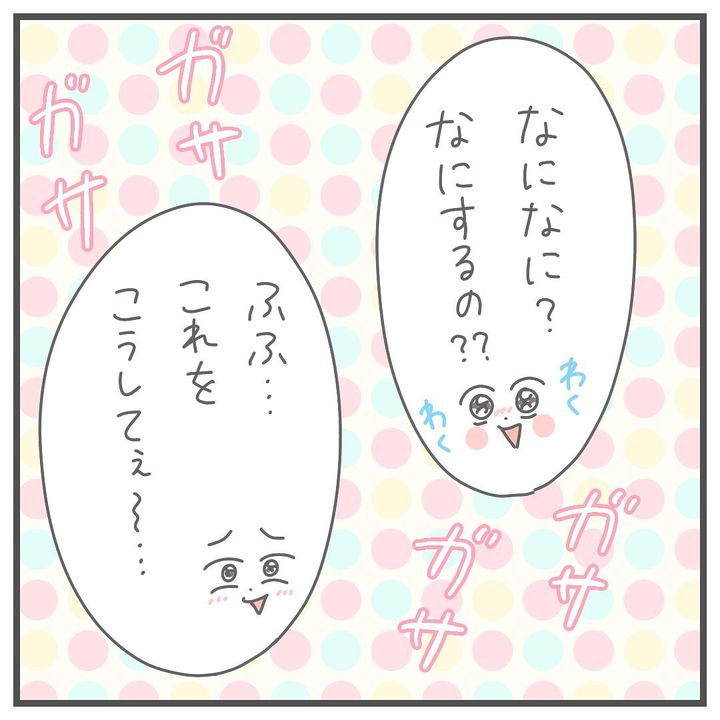 なになに？
なにするの??
わく
わく
ガサ
ガサ
ふふ…
これを
こうしてぇ〜…
ガサ
ガサ